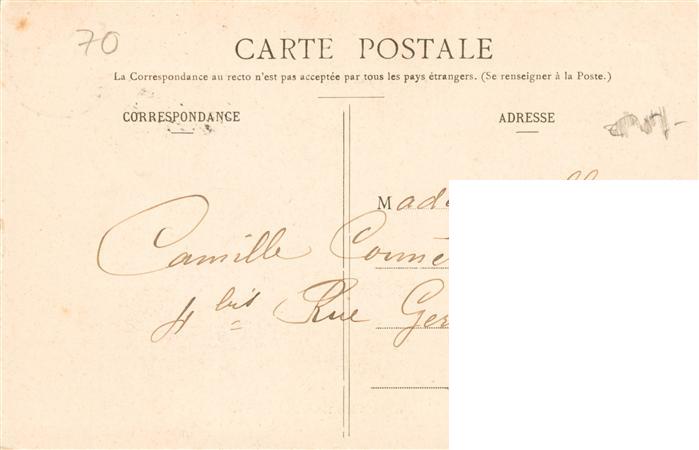 70
CARTE POSTALE
La Correspondance au recto n'est pas acceptée par tous les pays étrangers. (Se renseigner à la Poste.)
CORRESPONDANCE
ADRESSE
Camille
4 bis Rue